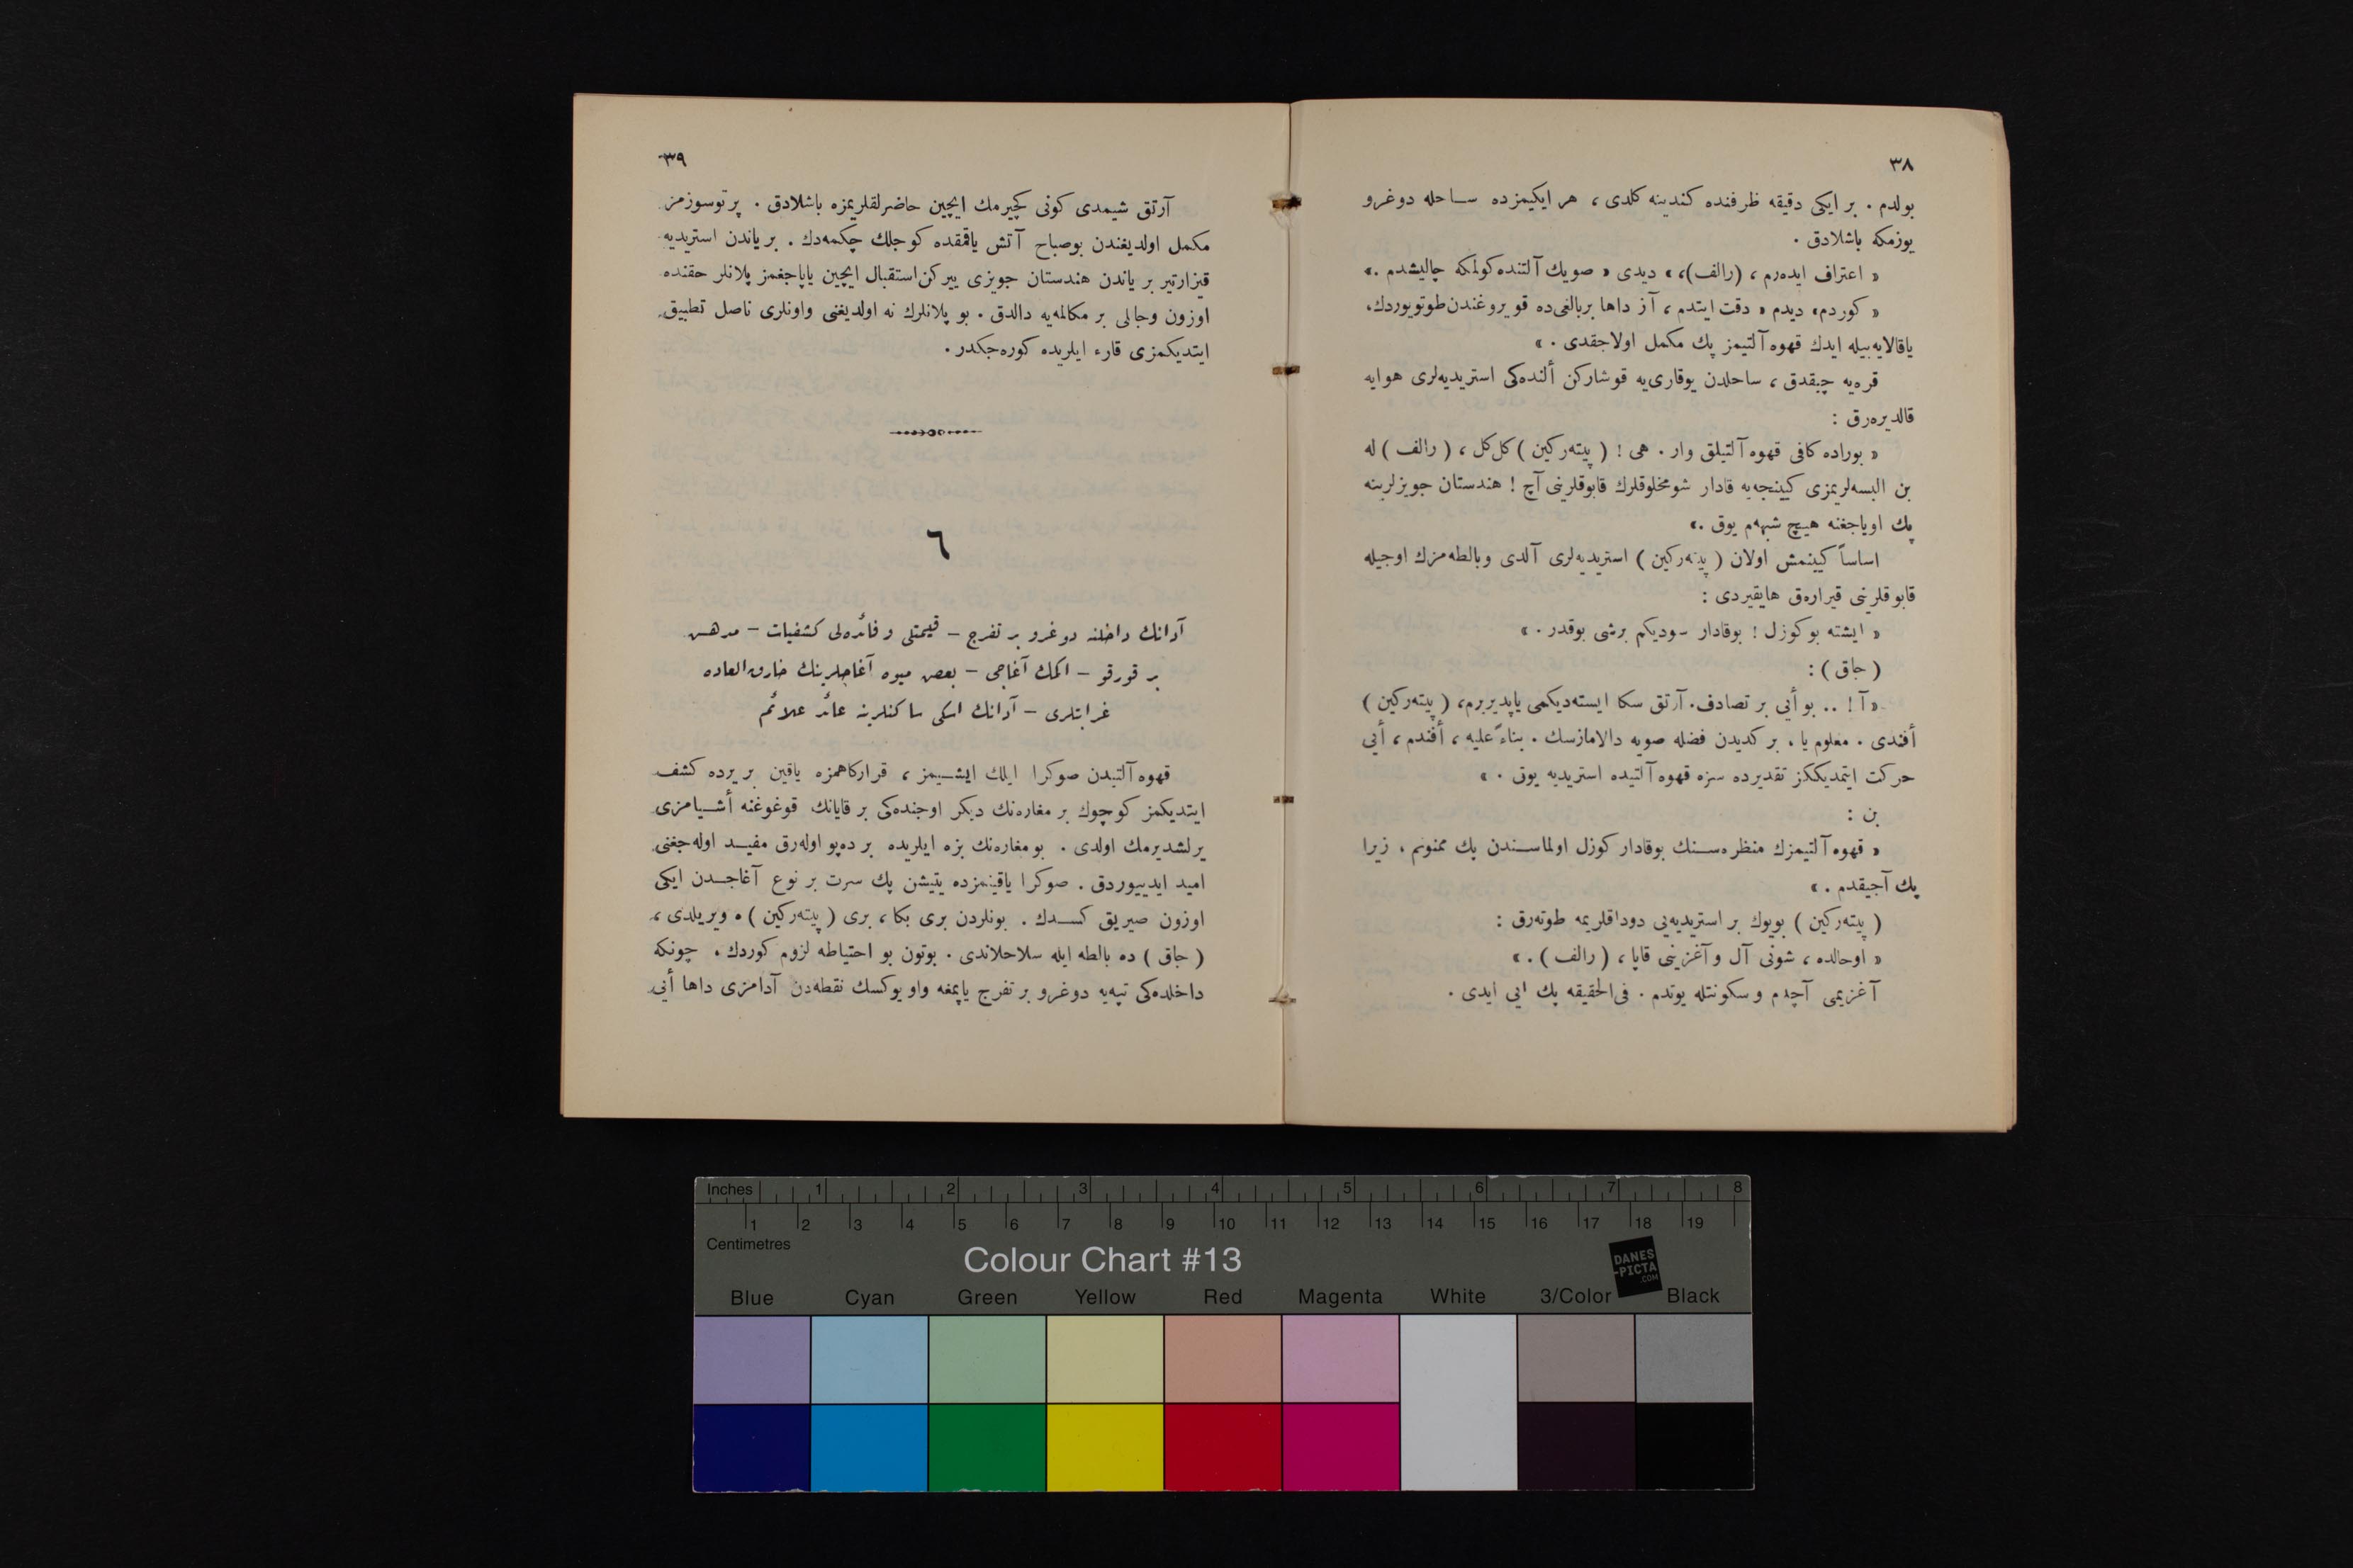 ٣٨
بولدم . بر ایکی دقیقه ظرفنده کندینه کلدی ، هر ایکیمزده ساحله دوغرو
یوزمکه باشلادق .
« اعتراف ایده‌رم ، (رالف)، » دیدی « صویك آلتنده کولمکه چالیشدم .»
« کوردم» دیدم « دقت ایتدم ، آز داها بربالغی‌ده قویروغندن طوتویوردك،
یاقالایه‌بیله ایدك قهوه آلتیمز پك مکمل اولاجقدی . »
قره‌یه چیقدق ، ساحلدن یوقاری‌یه قوشارکن ألنده‌کی استریدیه‌لری هوایه
قالدیره‌رق :
« بوراده کافی قهوه آلتیلق وار . هی ! ( پیته‌رکین ) کل کل ، ( رالف ) له
بن البسه‌لریمزی کیینجه‌یه قادار شو مخلوقلرك قابوقلرینی آچ ! هندستان جویزلرینه
پك اویاجغنه هیچ شبهه‌م یوق .»
اساساً کیینمش اولان ( پیته‌رکین ) استریدیه‌لری آلدی وبالطه‌مزك اوجیله
قابوقلرینی قیراره‌ق هایقیردی :
« ایشته بو کوزل ! بوقادار سودیکم برشی یوقدر . »
( جاق ) :
« آ ! .. بو أیی بر تصادف. آرتق سکا ایسته‌دیکمی یاپدیریرم، ( پیته‌رکین )
أفندی . معلوم یا ، بر کدیدن فضله صویه دالامازسك . بناءً علیه ، أفندم ، أیی
حرکت ایتمدیککز تقدیرده سزه قهوه آلتیده استریدیه یوق . »
بن :
« قهوه آلتیمزك منظره‌سنك بوقادار کوزل اولماسندن پك ممنونم ، زیرا
پك آجیقدم . »
( پیته‌رکین ) بویوك بر استریدیه‌یی دوداقلریمه طوته‌رق :
« اوحالده ، شونی آل و آغزینی قاپا ، ( رالف ) . »
آغزیمی آچدم و سکونتله یوتدم . فی‌الحقیقه پك ایی ایدی .
٣٩
آرتق شیمدی کونی کچیرمك ایچین حاضرلقلریمزه باشلادق . پرتوسوزمز
مکمل اولدیغندن بوصباح آتش یاقمقده کوجلك چکمه‌دك . بر یاندن استریدیه
قیزارتیر بر یاندن هندستان جویزی ییرکن استقبال ایچین یاپاجغمز پلانلر حقنده
اوزون وجالی بر مکالمه‌یه دالدق . بو پلانلرك نه اولدیغنی واونلری ناصل تطبیق
ایتدیکمزی قارء ایلریده کوره‌جکدر .
٦
آدانك داخلنه دوغرو بر تفرج – قیمتلی و فائده‌لی کشفیات – مدهش
بر قورقو – اکمك آغاجی – بعض میوه آغاجلرینك خارق‌العاده
غرابتلری – آدانك اسکی ساکنلرینه عائد علائم
قهوه آلتیدن صوکرا ایلك ایشیمز ، قرارکاهمزه یاقین بر یرده کشف
ایتدیکمز کوچوك بر مغاره‌نك دیکر اوجنده‌کی بر قایانك قوغوغنه أشیامزی
یرلشدیرمك اولدی . بومغاره‌نك بزه ایلریده بر ده‌پو اوله‌رق مفید اوله‌جغنی
امید ایدییوردق . صوکرا یاقینمزده یتیشن پك سرت بر نوع آغاجدن ایکی
اوزون صیریق کسدك . بونلردن بری بکا ، بری ( پیته‌رکین ) ه ویریلدی ،
( جاق ) ده بالطه ایله سلاحلاندی . بوتون بو احتیاطه لزوم کوردك ، چونکه
داخلده‌کی تپه‌یه دوغرو بر تفرج یاپمغه واو یوکسك نقطه‌دن آدامزی داها أیی
Inches 1 2 3 4 5 6 7 8
1 2 3 4 5 6 7 8 9 10 11 12 13 14 15 16 17 18 19
Centimetres
Colour Chart #13
DANES
-PICTA
.COM
Blue Cyan Green Yellow Red Magenta White 3/Color Black